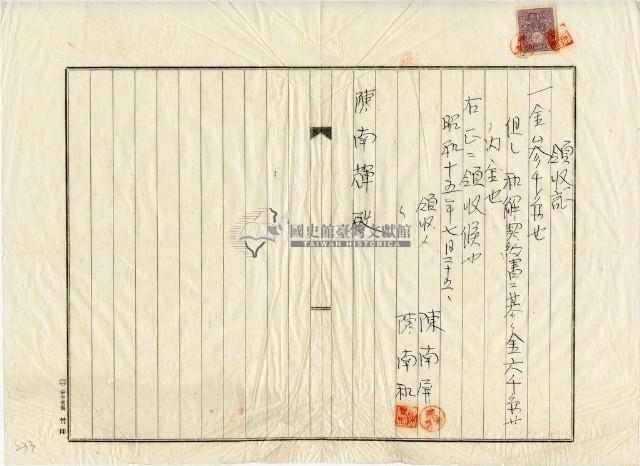 領收証
一金參千円也
但シ和解契約書ニ基ク金六千円也
ノ内金也
右正ニ領收候也
昭和十五年七月二十五日
領收人
陳南屏
陳南和
陳南輝 殿
國史館臺灣文獻館
TAIWAN HISTORICA
233